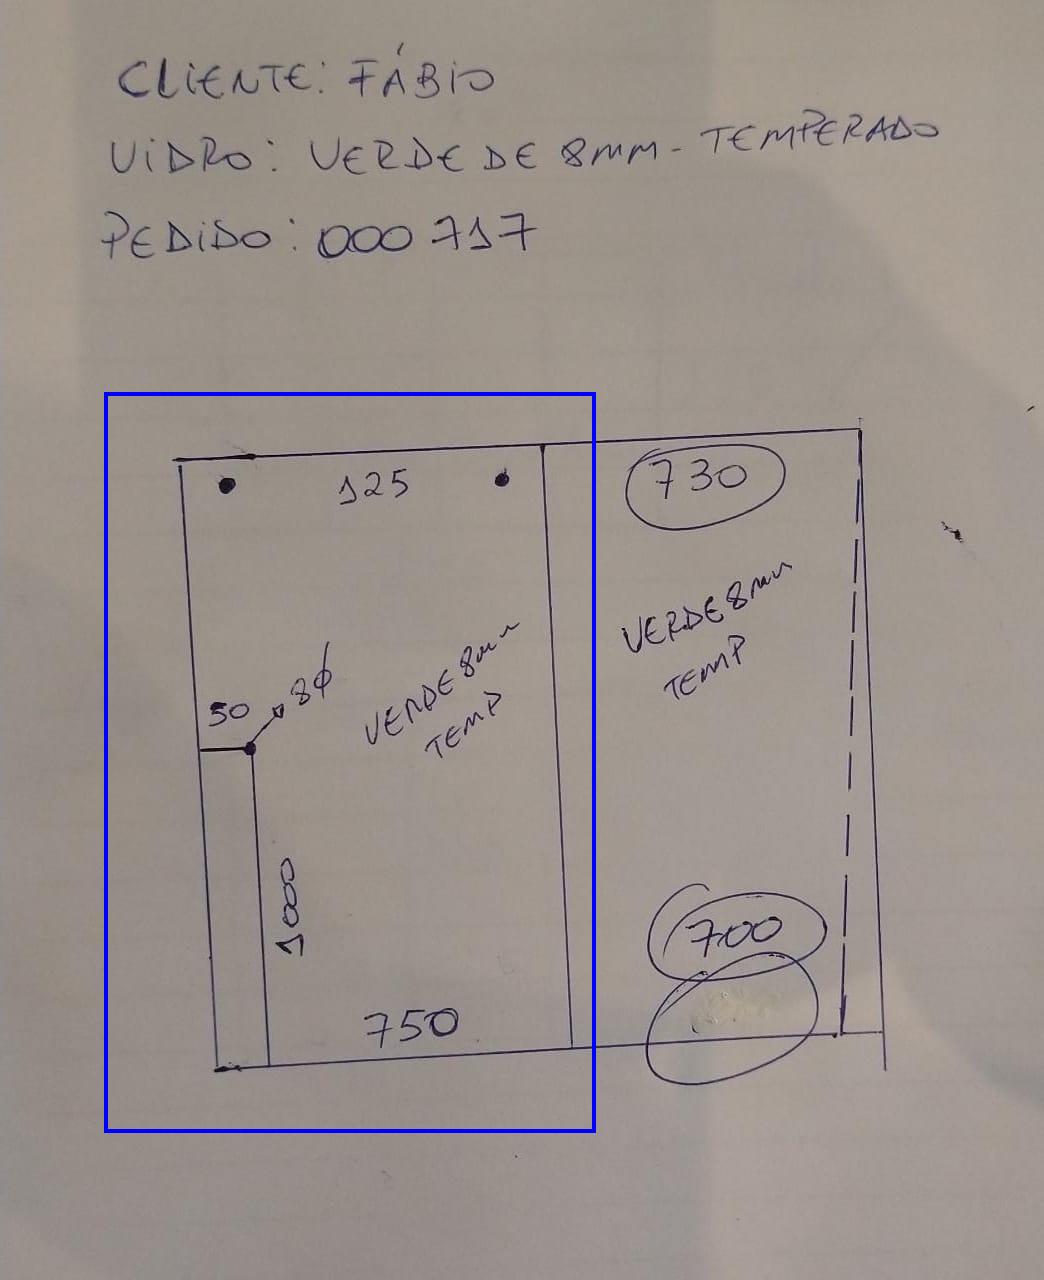 CLIENTE: FÁBIO
VIDRO: VERDE DE 8MM - TEMPERADO
PEDIDO: 000717
125
730
VERDE 8mm
TEMP
VERDE 8mm
TEMP
50
8ϕ
1000
700
750